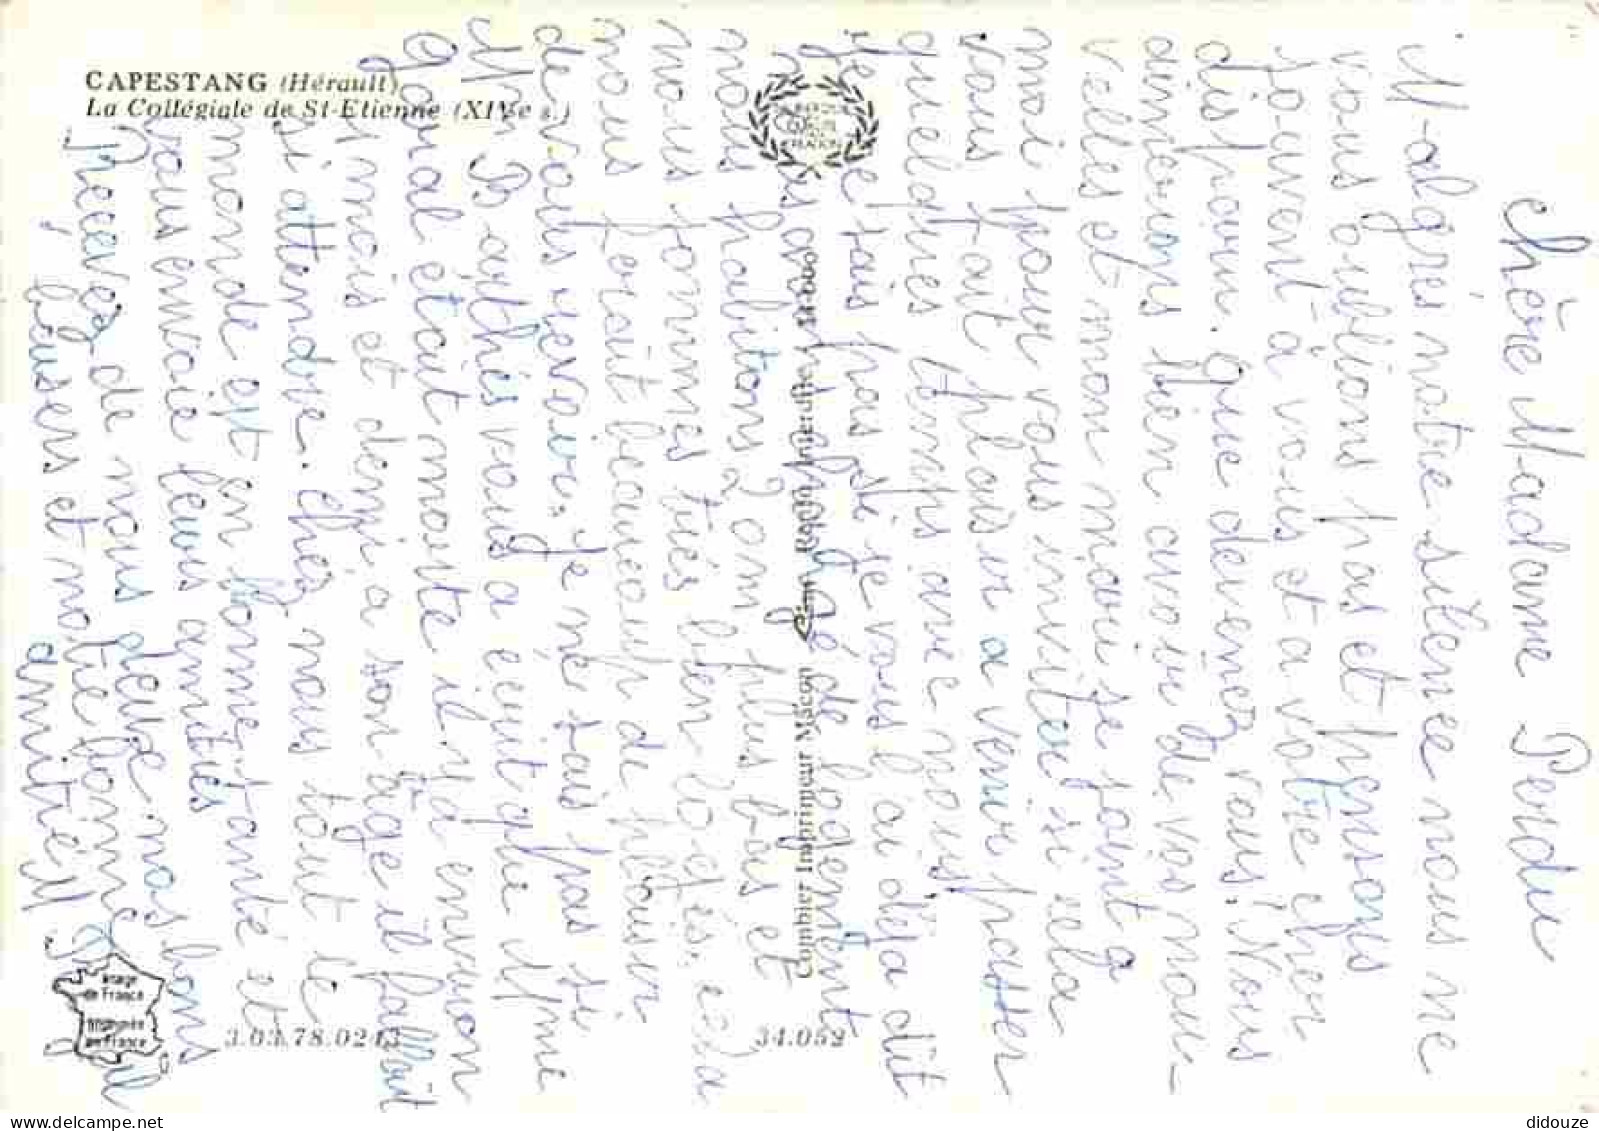 CAPESTANG (Hérault)
La Collégiale de St-Etienne (XIVe s.)
Chère Madame Perdu
Malgrés notre silence nous ne
vous oublions pas et pensons
souvent à vous et a votre cher
disparu. que devenez vous? Nous
aimerions bien avoir de vos nou-
velles et mon mari se joint a
moi pour vous inviter si cela
vous fait plaisir a venir passer
quelques temps avec nous,
Je ne sais pas si je vous l'ai déja dit
nous avons changé de logement
nous habitons 20m plus bas et
nous sommes trés bien logés, cela
nous ferait beaucoup de plaisir
de vous revoir, Je ne sais pas si
Mr Barthés vous a écrit que Mme
Goual etait morte il y a environ
1 mois et demi, a son age il fallait
si attendre. Chez nous tout le
monde est en bonne santé et
vous envoie leurs amitiés
Recevez de nous deux nos bons
baisers et notre bonne
amitié
Combier Imprimeur Mâcon
Repro. Interdite
Image
de France
Imprimée
en France
3.03.78.0243
34.052
didouze